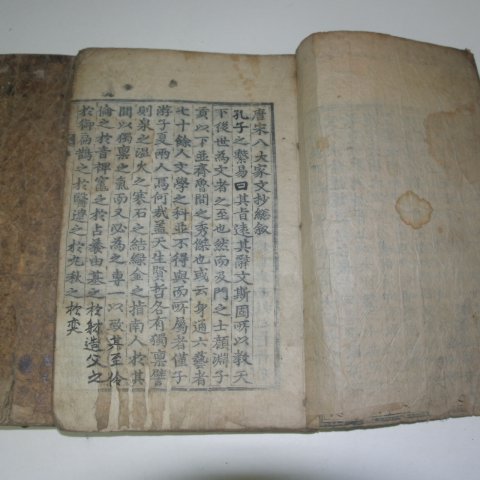 唐宋八大家文抄緫叙
孔子之繫易曰其旨遠其辭文斯固所以敎天
下後世為文者之至也然而及門之士顔淵子
貢以下並齊魯間之秀傑也或云身通六藝者
七十餘人文學之科並不得與而所属者僅子
游子夏兩人焉何哉盖天生賢哲各有獨禀譬
則泉之温火之寒石之結緑金之指南人於其
間以獨禀之氣而又必為之專一以致其至伶
倫之於音裨竈之於占養由基之於射造父之
於御扁鵲之於醫遼之於九秋之於奕